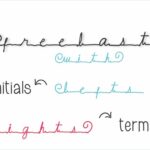 freebast
with
nitials
Thefts
ights
term